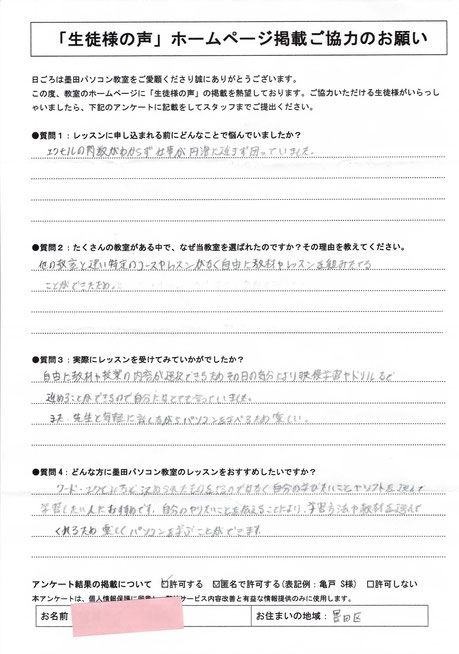 「生徒様の声」ホームページ掲載ご協力のお願い
日ごろは墨田パソコン教室をご愛顧くださり誠にありがとうございます。
この度、教室のホームページに「生徒様の声」の掲載を熱望しております。ご協力いただける生徒様がいらっし
ゃいましたら、下記のアンケートに記載をしてスタッフまでご提出ください。
●質問１：レッスンに申し込まれる前にどんなことで悩んでいましたか？
エクセルの関数がわからず仕事が円滑に進まず困っていました。
●質問２：たくさんの教室がある中で、なぜ当教室を選ばれたのですか？その理由を教えてください。
他の教室と違い特定のコースやレッスンがなく自由に教材やレッスンを組みたてる
ことができたため。
●質問３：実際にレッスンを受けてみていかがでしたか？
自由に教材や授業の内容が選択できるためその日の気分により映像学習やドリルなど
進めることができるので自分に
また、先生と気軽に話しながらパソコンを学べるため楽しい。
●質問４：どんな方に墨田パソコン教室のレッスンをおすすめしたいですか？
ワード・エクセルなど決められたものではなく自分の学びたいことやソフトを選んで
学習したい人におすすめです。自分のやりたいことを伝えることにより、学習方法や教材を選んで
くれるため楽しくパソコンを学ぶことができます。
アンケート結果の掲載について □許可する ☑匿名で許可する(表記例：亀戸 S様) □許可しない
本アンケートは、個人情報保護に サービス内容改善と有益な情報提供のみに使用します。
お名前 お住まいの地域： 墨田区